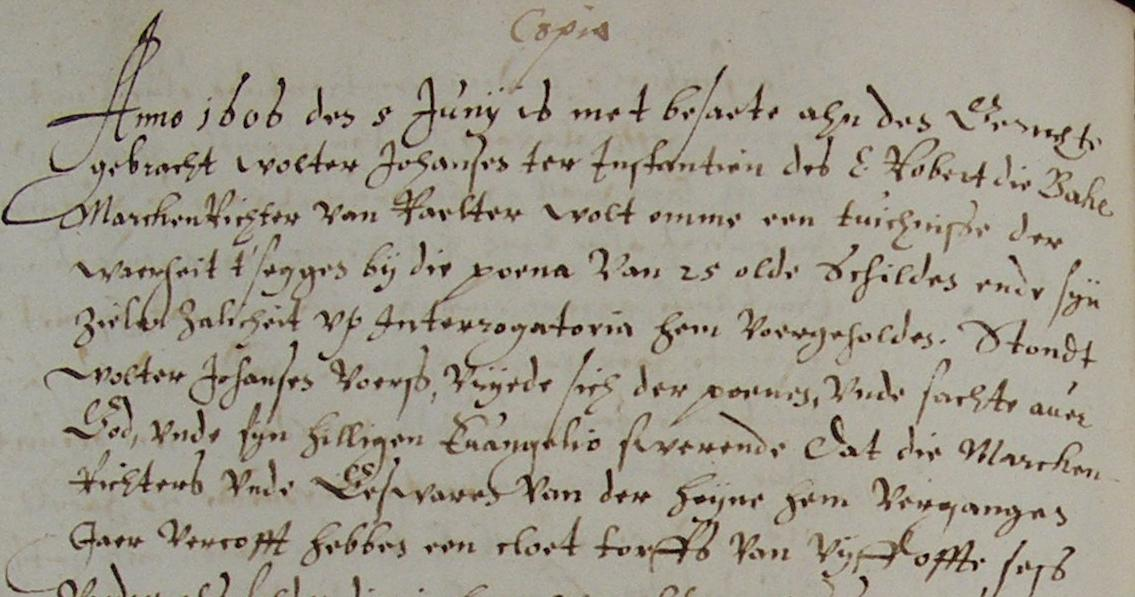 Copia
Anno 1606 den 5 Junij is met besaete ahn den Gerichte
gebracht Wolter Johansen ter Instantien des E Robert die Bake
Marcken Richter van Raelter Wolt omme een tuichnisse der
waerheit t'seggen bij die poena van 25 olde Schilden ende syn
Zielen Zalicheit vp Interrogatoria hem voergeholden. Stondt
Wolter Johansen voerss, vryede sich der poenen, vnde sachte auer
God, vnde syn hilligen Euangelio swerende Dat die Marcken
Richters vnde Geswaren van der heyne hem vergangen
Jaer vercofft hebben een cloet torffs van vyff offte sess